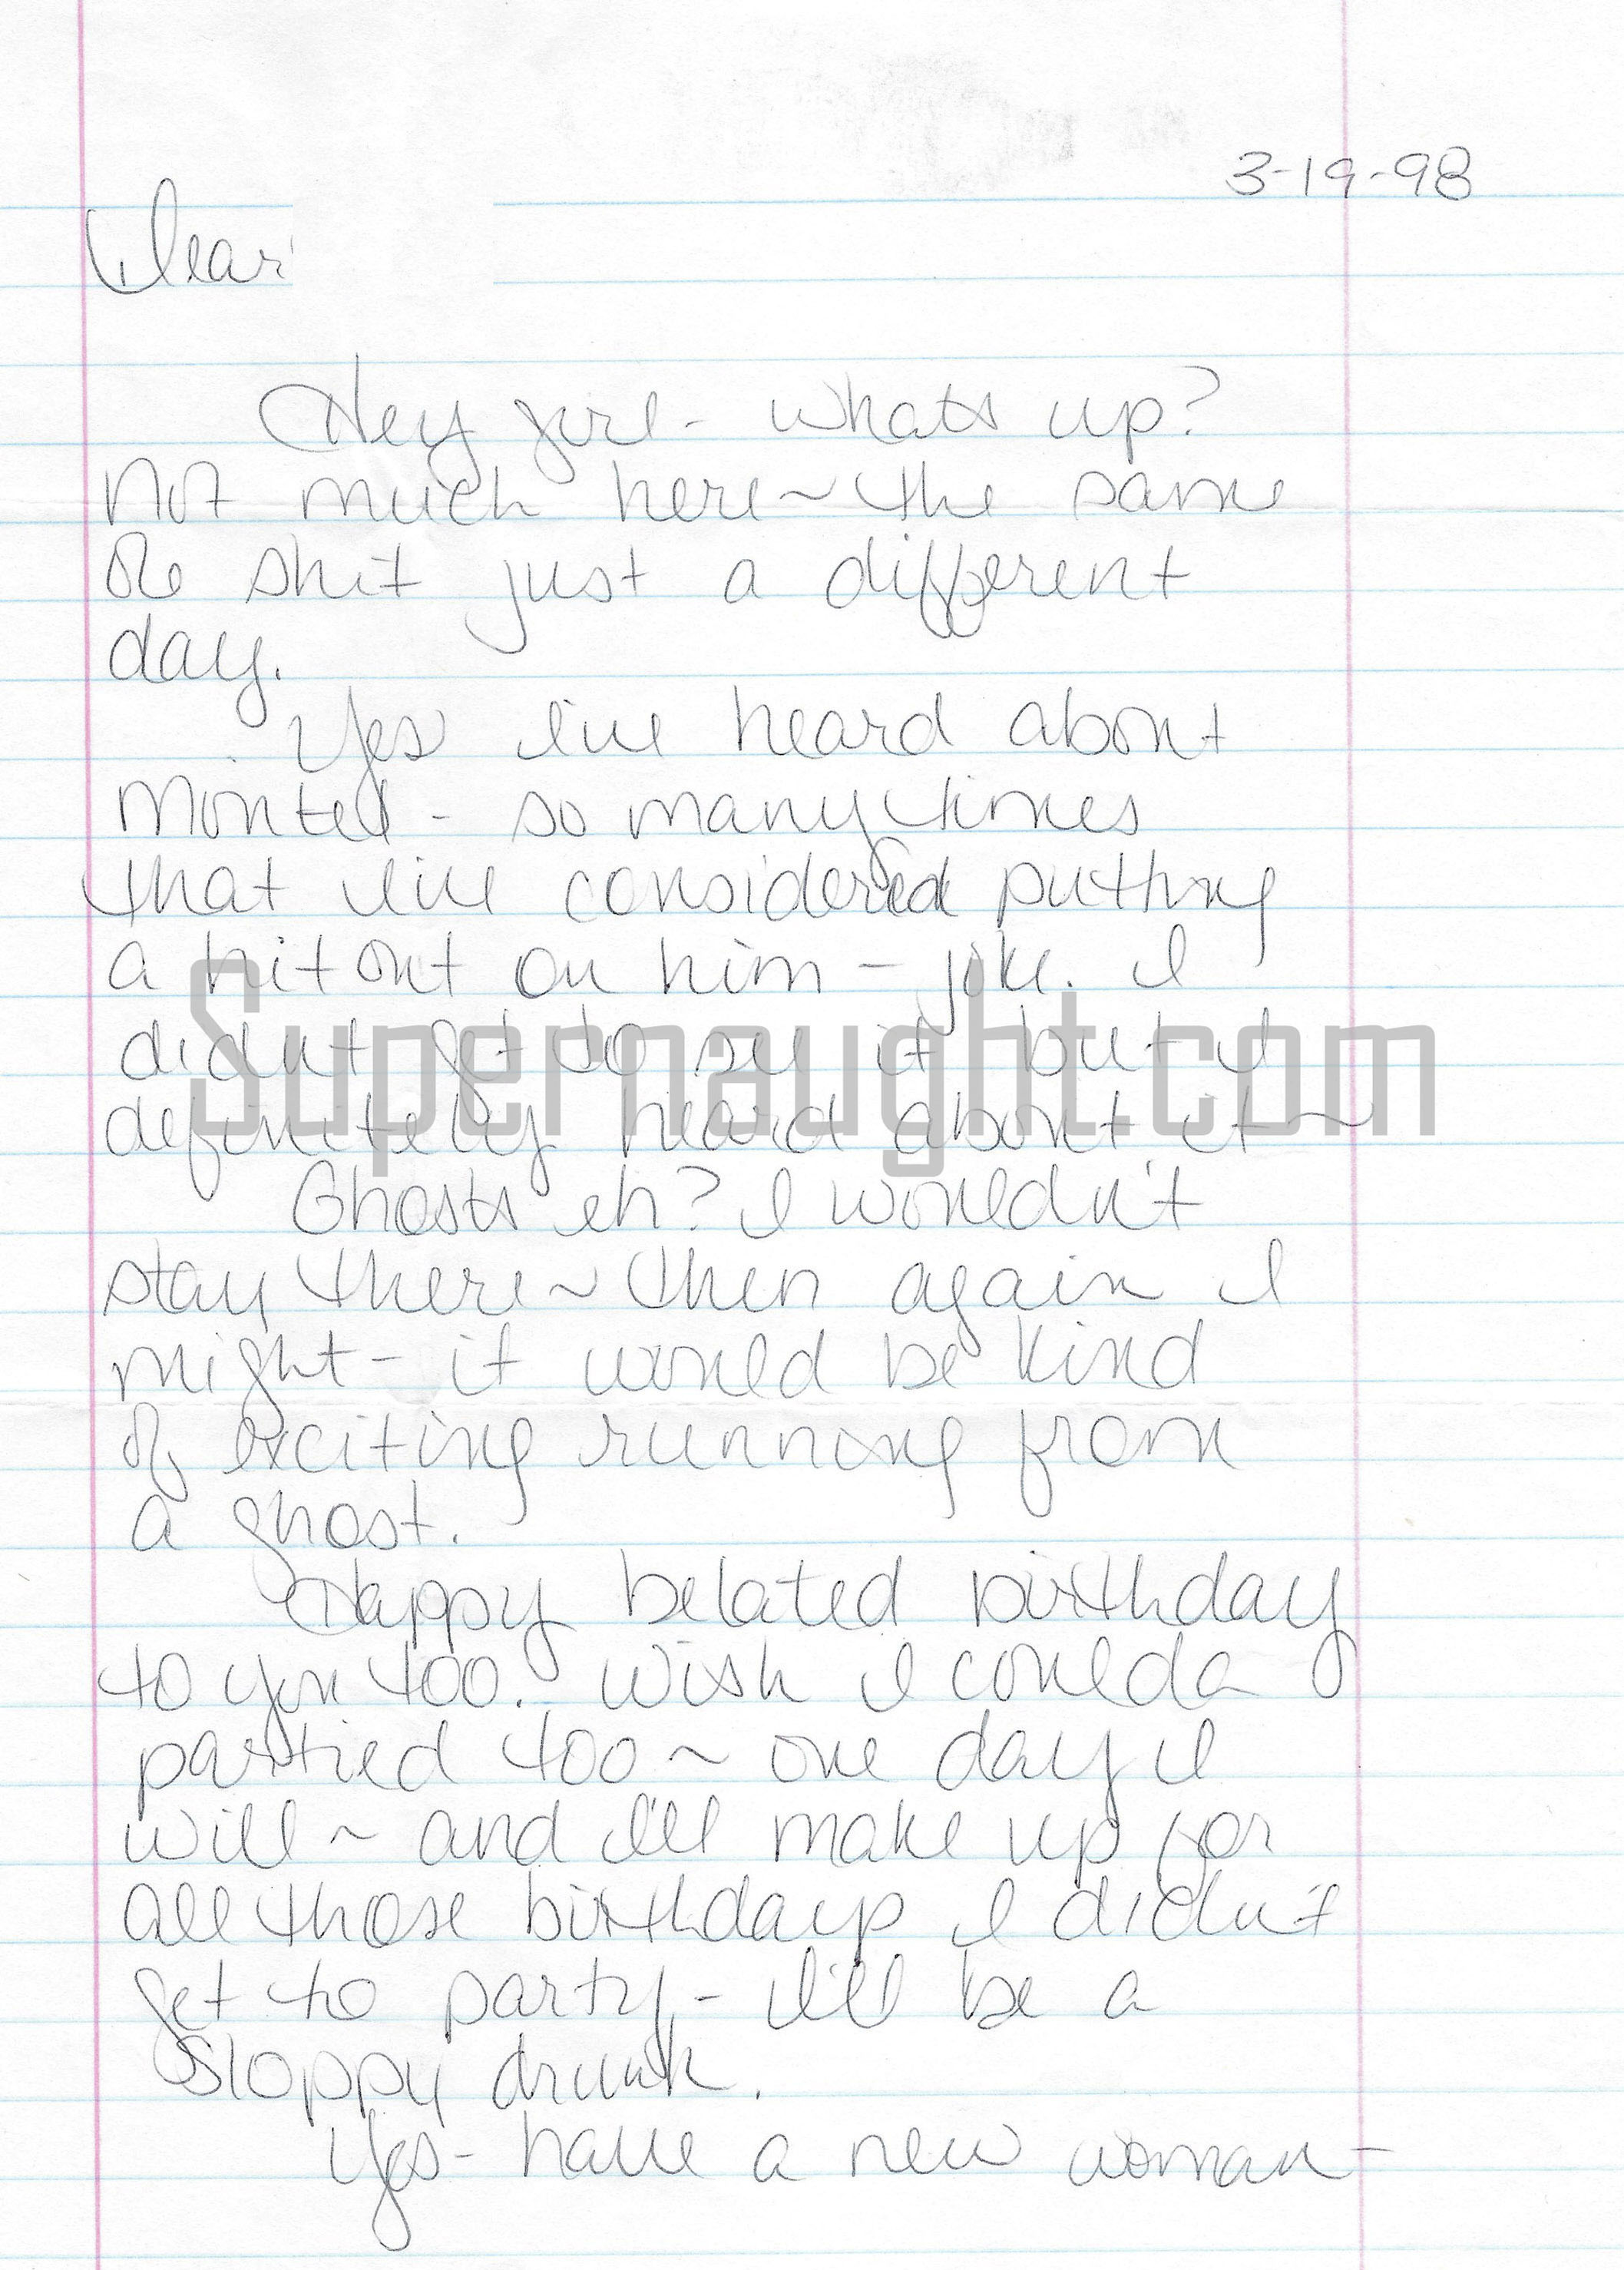 3-19-98
Dear
Hey girl - whats up?
Not much here ~ the same
ole shit just a different
day.
Yes I've heard about
Montel - so many times
that I've considered putting
a hit out on him - joke. I
didn't get to see it but I
definitely heard about it ~
Ghosts eh? I wouldn't
stay there ~ then again I
might - it would be kind
of exciting running from
a ghost.
Happy belated birthday
to you too. Wish I coulda
partied too ~ one day I
will ~ and I'll make up for
all those birthdays I didn't
get to party - I'll be a
sloppy drunk.
Yes - have a new woman -
Supernaught.com